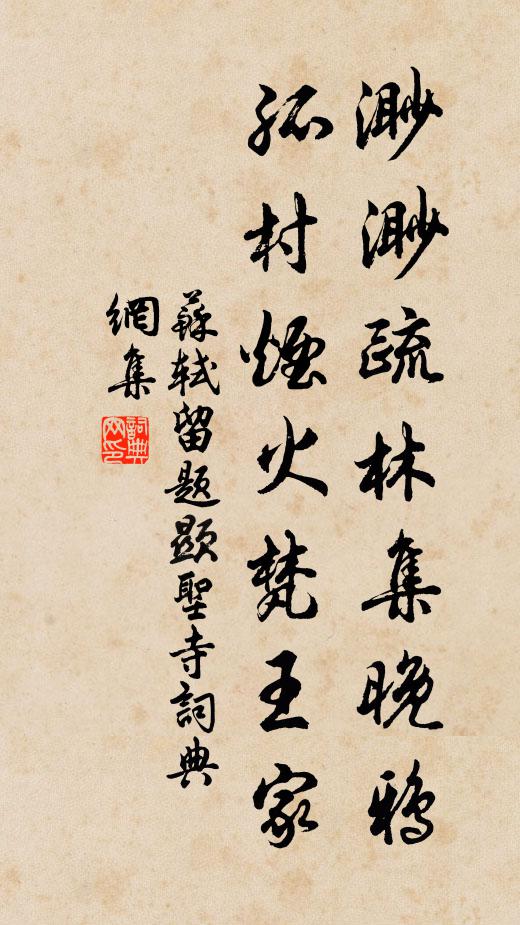 渺渺疏林集晚鴉
孤村煙火梵王家
蘇軾留題顯聖寺詞典
網集
詞典網印